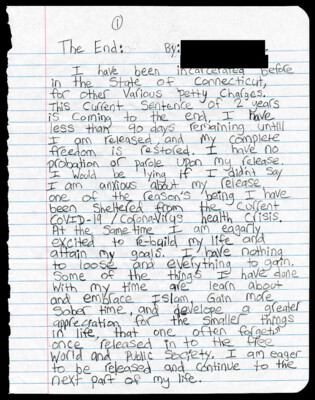 ①
The End: By:
I have been incarcerated before
in the State of Connecticut,
for other Various petty Charges.
This Current Sentence of 2 years
is Coming to the end, I have
less than 90 days remaining untill
I am released, and my complete
freedom is restored. I have no
probation or parole upon my release.
I Would be lying if I didnt say
I am anxious about my release
one of the reason's being I have
been sheltered from the current
COVID-19 / Coronavirus health crisis.
At the same time I am eagarly
excited to re-build my life and
attain my goals. I have nothing
to loose and everything to gain.
Some of the things I have done
With my time are learn about
and embrace Islam, Gain more
Sober time, and develope a greater
apprecration for the smaller things
in life, that one often forgets
once released in to the free
World and Public Society. I am eager
to be released and continue to the
next part of my life.